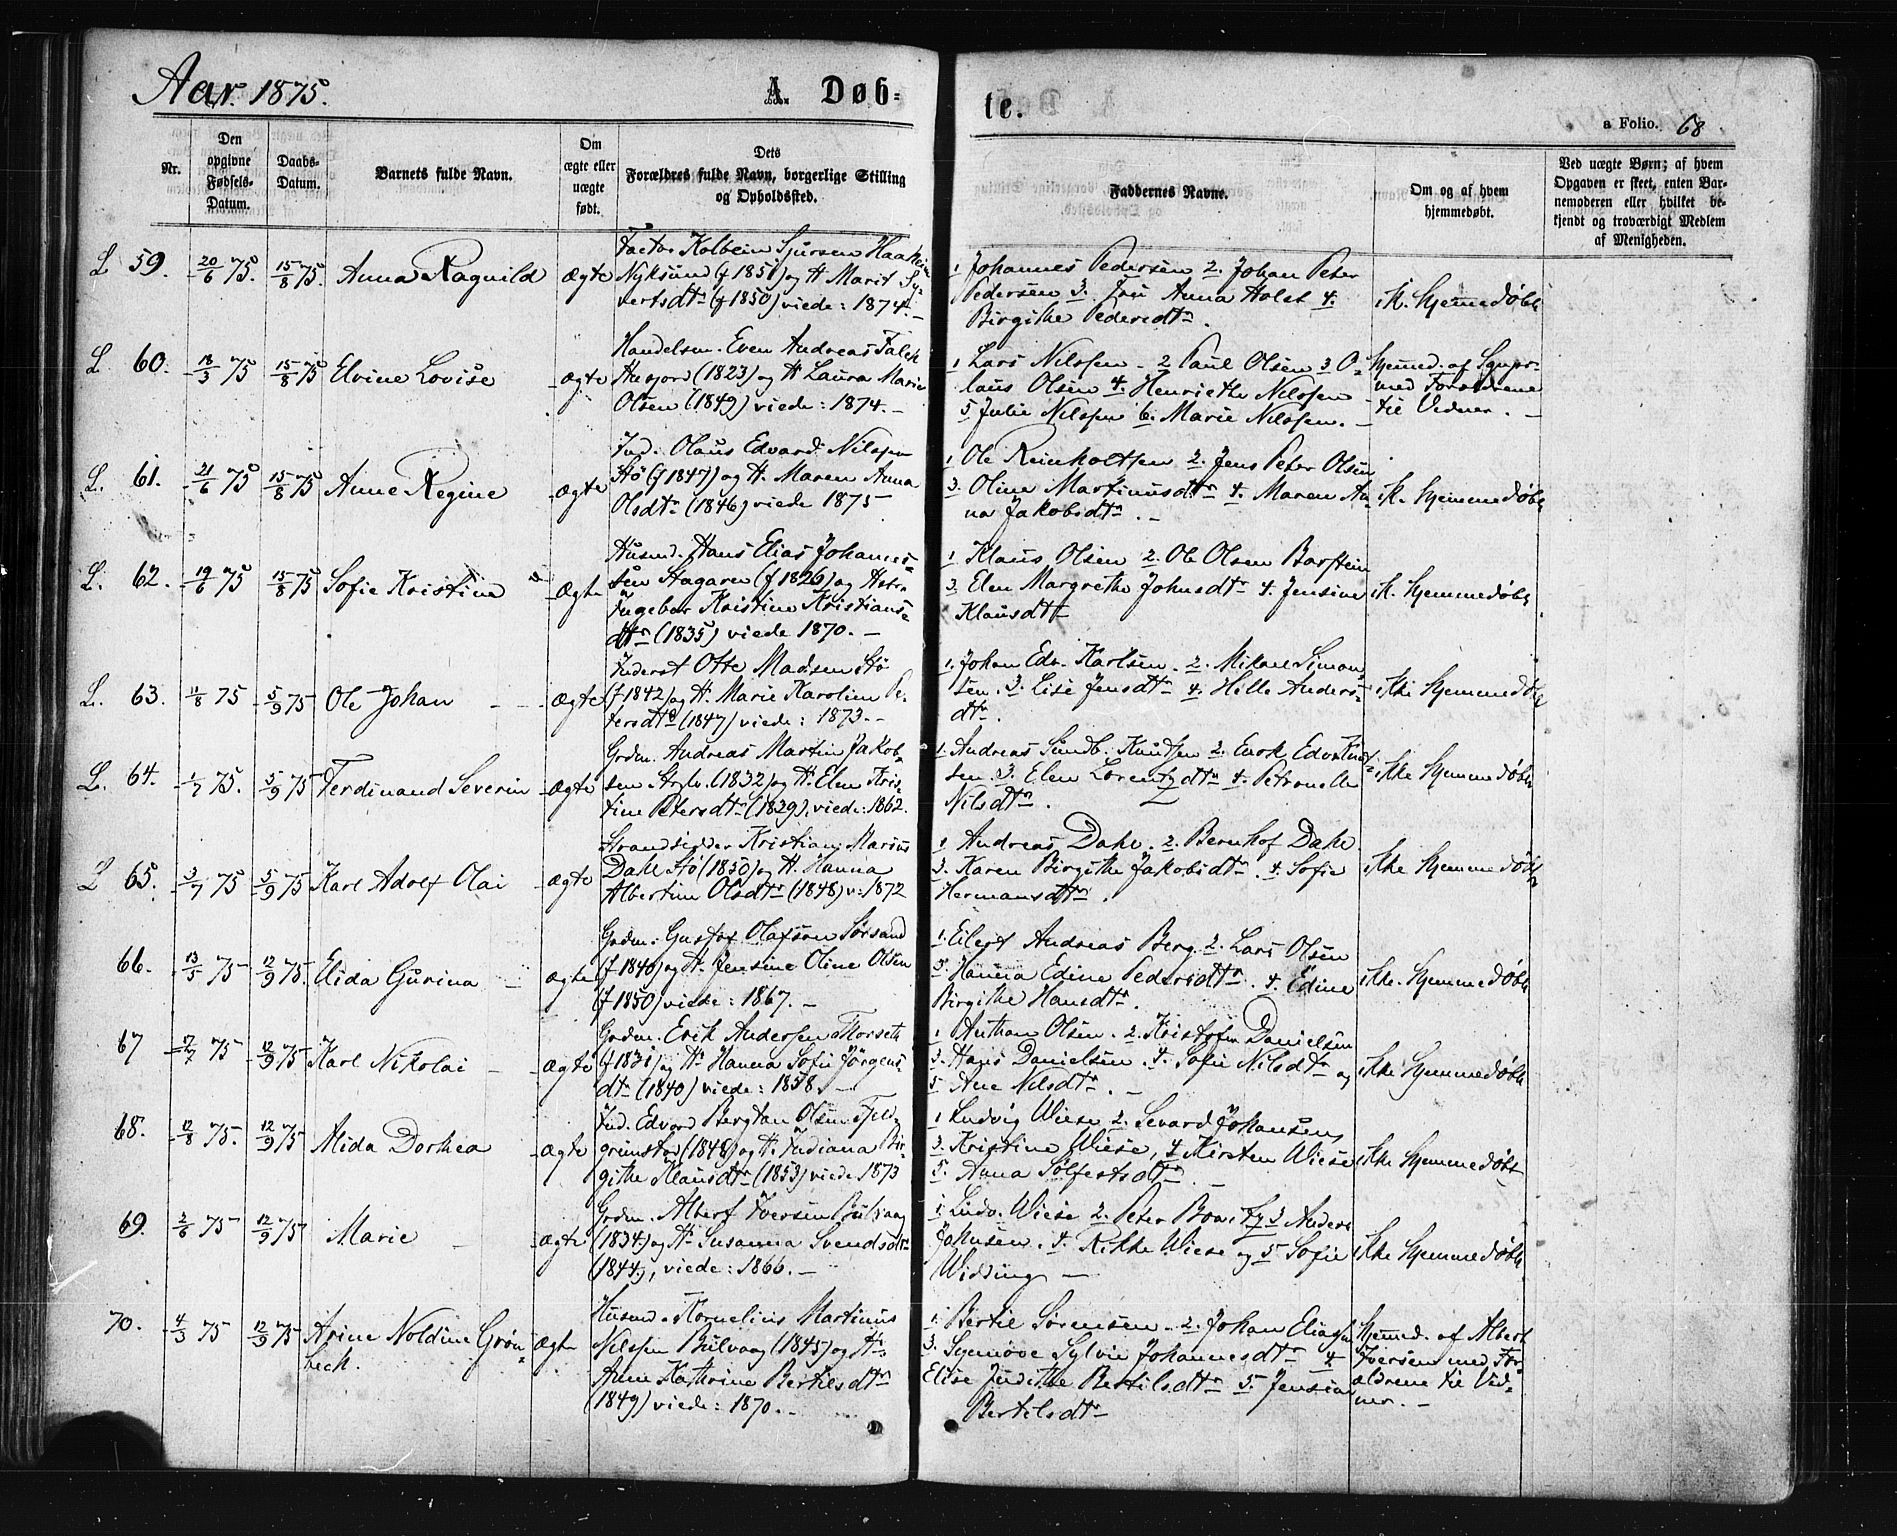 Aar. 1875.
A. Døb-
te.
a Folio. 68
Nr.
Den opgivne Fødsels-Datum.
Daabs-Datum.
Barnets fulde Navn.
Om ægte eller uægte født.
Dets Forældres fulde Navn, borgerlige Stilling og Opholdssted.
Faddernes Navne.
Om og af hvem hjemmedøbt.
Ved uægte Børn; af hvem Opgaven er skeet, enten Barnemoderen eller hvilket bekjendt og troværdigt Medlem af Menigheden.
L 59. 20/6 75. 15/8 75. Anna Ragnild ægte
Factor Kolbein Sjursen Haaheim
Nyksund (f 1851) og H. Marit Sy-
vertsdtr (f 1850) viede: 1874. –
1. Johannes Pedersen 2. Johan Peter
Pedersen 3. Fru Anna Holst 4.
Birgithe Pedersdtr.
ik. hjemmedøbt
L 60. 18/3 75 15/8 75 Elvine Lovise ægte
Handelsm. Even Andreas Falch
(1823) og H. Laura Marie
Olsen (1849) viede: 1874. –
1 Lars Nilssen – 2 Paul Olsen 3 O-
laus Olsen 4. Henriethe Nilssen
5 Julie Nilssen 6. Marie Nilssen. –
hjemmed. af
med Forældrene
til Vidner. –
L. 61. 21/6 75 15/8 75 Anne Regine ægte
Ind. Olaus Edvard Nilssen
Stø (f 1847) og H. Maren Anna
Olsdtr (1846) viede 1875 –
1 Ole Reinholtsen 2. Jens Peter Olsen
3. Oline Martinusdtr 4. Maren An-
na Jakobsdtr. –
ik. hjemmedøbt
L. 62. 19/6 75 15/8 75 Sofie Kristine ægte
Husmd. Hans Elias Johannes-
sen Stagaren (f 1826) og Hstr
Ingebor Kristine Kristians-
dtr (1835) viede 1870. –
1 Klaus Olsen 2. Ole Olsen Barstein
3 Elen Margrethe Johnsdtr 4. Jensine
Klausdtr
ik. hjemmedøbt
L. 63. 11/8 75 5/9 75 Ole Johan ægte
Inderst Otto Madsen Stø
(f 1842) og H. Marie Karolien Pe-
tersdtr (1847) viede: 1873. –
1. Johan Edv. Karlsen. 2. Mikael Simon-
sen. 3. Lise Jensdtr 4. Hille Anders-
dtr.
ikke hjemmedøbt
L. 64. 1/7 75. 5/9 75 Ferdinand Severin ægte
Grdm. Andreas Martin Jakob-
sen (1832) og H. Elen Kris-
tine Petersdtr (1829), viede: 1862.
1. Andreas Sundb. Knutsen 2. Enok Edv. Knut-
sen. 3. Elen Lorentzdtr 4. Petronelle
Nilsdtr.
ikke hjemmedøbt
L 65. 3/7 75 5/9 75 Karl Adolf Olai ægte
Strandsidder Kristian Marius
Dahl Stø (1850) og H. Hanna
Albertine Olsdtr (1848) v: 1872
1. Andreas Dahl. 2. Bernhof Dahl
3. Karen Birgithe Jakobsdtr. 4. Sofie
Hermansdtr.
ikke hjemmedøbt
66. 13/5 75 12/9 75. Elida Gurina ægte
Grdm. Gustaf Olafsen Sørsand
(f 1840) og H. Jensine Oline Olsen
(f 1850) viede: 1867. –
1. Eilert Andreas Berg. 2. Lars Olsen
3. Hanna Edine Pedersdtr. 4. Edine
Birgithe Hansdtr.
ikke hjemmedøbt
67 17/7 75 12/9 75 Karl Nikolai ægte
Grdm. Erik Andersen Morseth
(f 1831) og H. Hanna Sofie Jørgens-
dtr (1840) viede: 1858. –
1 Anthon Olsen. 2. Kristofer Danielsen
3. Hans Danielsen. 4. Sofie Nilsdtr og
5. Ane Nilsdtr.
ikke hjemmedøbt
68. 12/8 75. 12/9 75 Alida Dorthea ægte
Ind. Edvard Bergtan Olsen
(1848) og H. Indiana Bir-
githe Klausdtr (1853) viede 1873
1 Ludvig Wiese 2. Sevard Johansen,
3. Kristine Wiese, 4 Kirsten Wiese
5. Anna Sølfestsdtr. –
ikke hjemmedøbt
69. 2/6 75 12/9 75 Marie ægte
Grdm. Albert Iversen Bulvaag
(1834) og H. Susanna Svendsdtr
(1844), viede: 1866. –
1. Ludv. Wiese 2. Peter 3 Anders
Johnsen. 4. Rikke Wiese og 5. Sofie
Widding –
ikke hjemmedøbt
70. 4/3 75 12/9 75 Arine Noldine Grøn-
beck. ægte
Husmd. Kornelius Martinus
Nilssen Bulvaag (1845) og H.
Anne Kathrine Bertilsdtr
(1849) viede: 1870. –
1. Bertil Sørensen. 2. Johan Eliassen
3. Synnøve Sylvie Johannesdtr 4
Elise Judithe Bertilsdtr 5. Jensine
Bertilsdtr
hjemmed. af Albert
Iversen med For-
ældrene til Vid-
ner. –